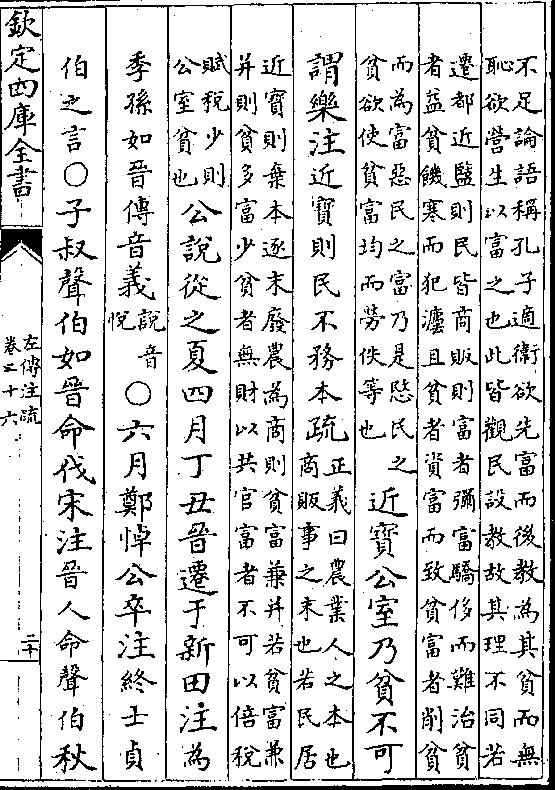 不足論語稱孔子適衛欲先富而後教為其貧而無
恥欲營生以富之也此皆觀民設教故其理不同若
遷都近鹽則民皆商販則富者彌富驕侈而難治貧
者益貧饑寒而犯灋且貧者資富而致貧富者削貧
而為富惡民之富乃是愍民之
貧欲使貧富均而勞佚等也
近寶公室乃貧不可
謂樂注近寶則民不務本疏
正義曰農業人之本也
商販事之末也若民居
近寶則棄本逐末廢農為商則貧富兼并若貧富兼
并則貧多富少貧者無財以共官富者不可以倍稅
賦稅少則
公室貧也
公說從之夏四月丁丑晉遷于新田注為
季孫如晉傳音義
說音
悅
○六月鄭悼公卒注終士貞
伯之言○子叔聲伯如晉命伐宋注晉人命聲伯秋
欽定四庫全書
左傳注疏
卷二十六
二十